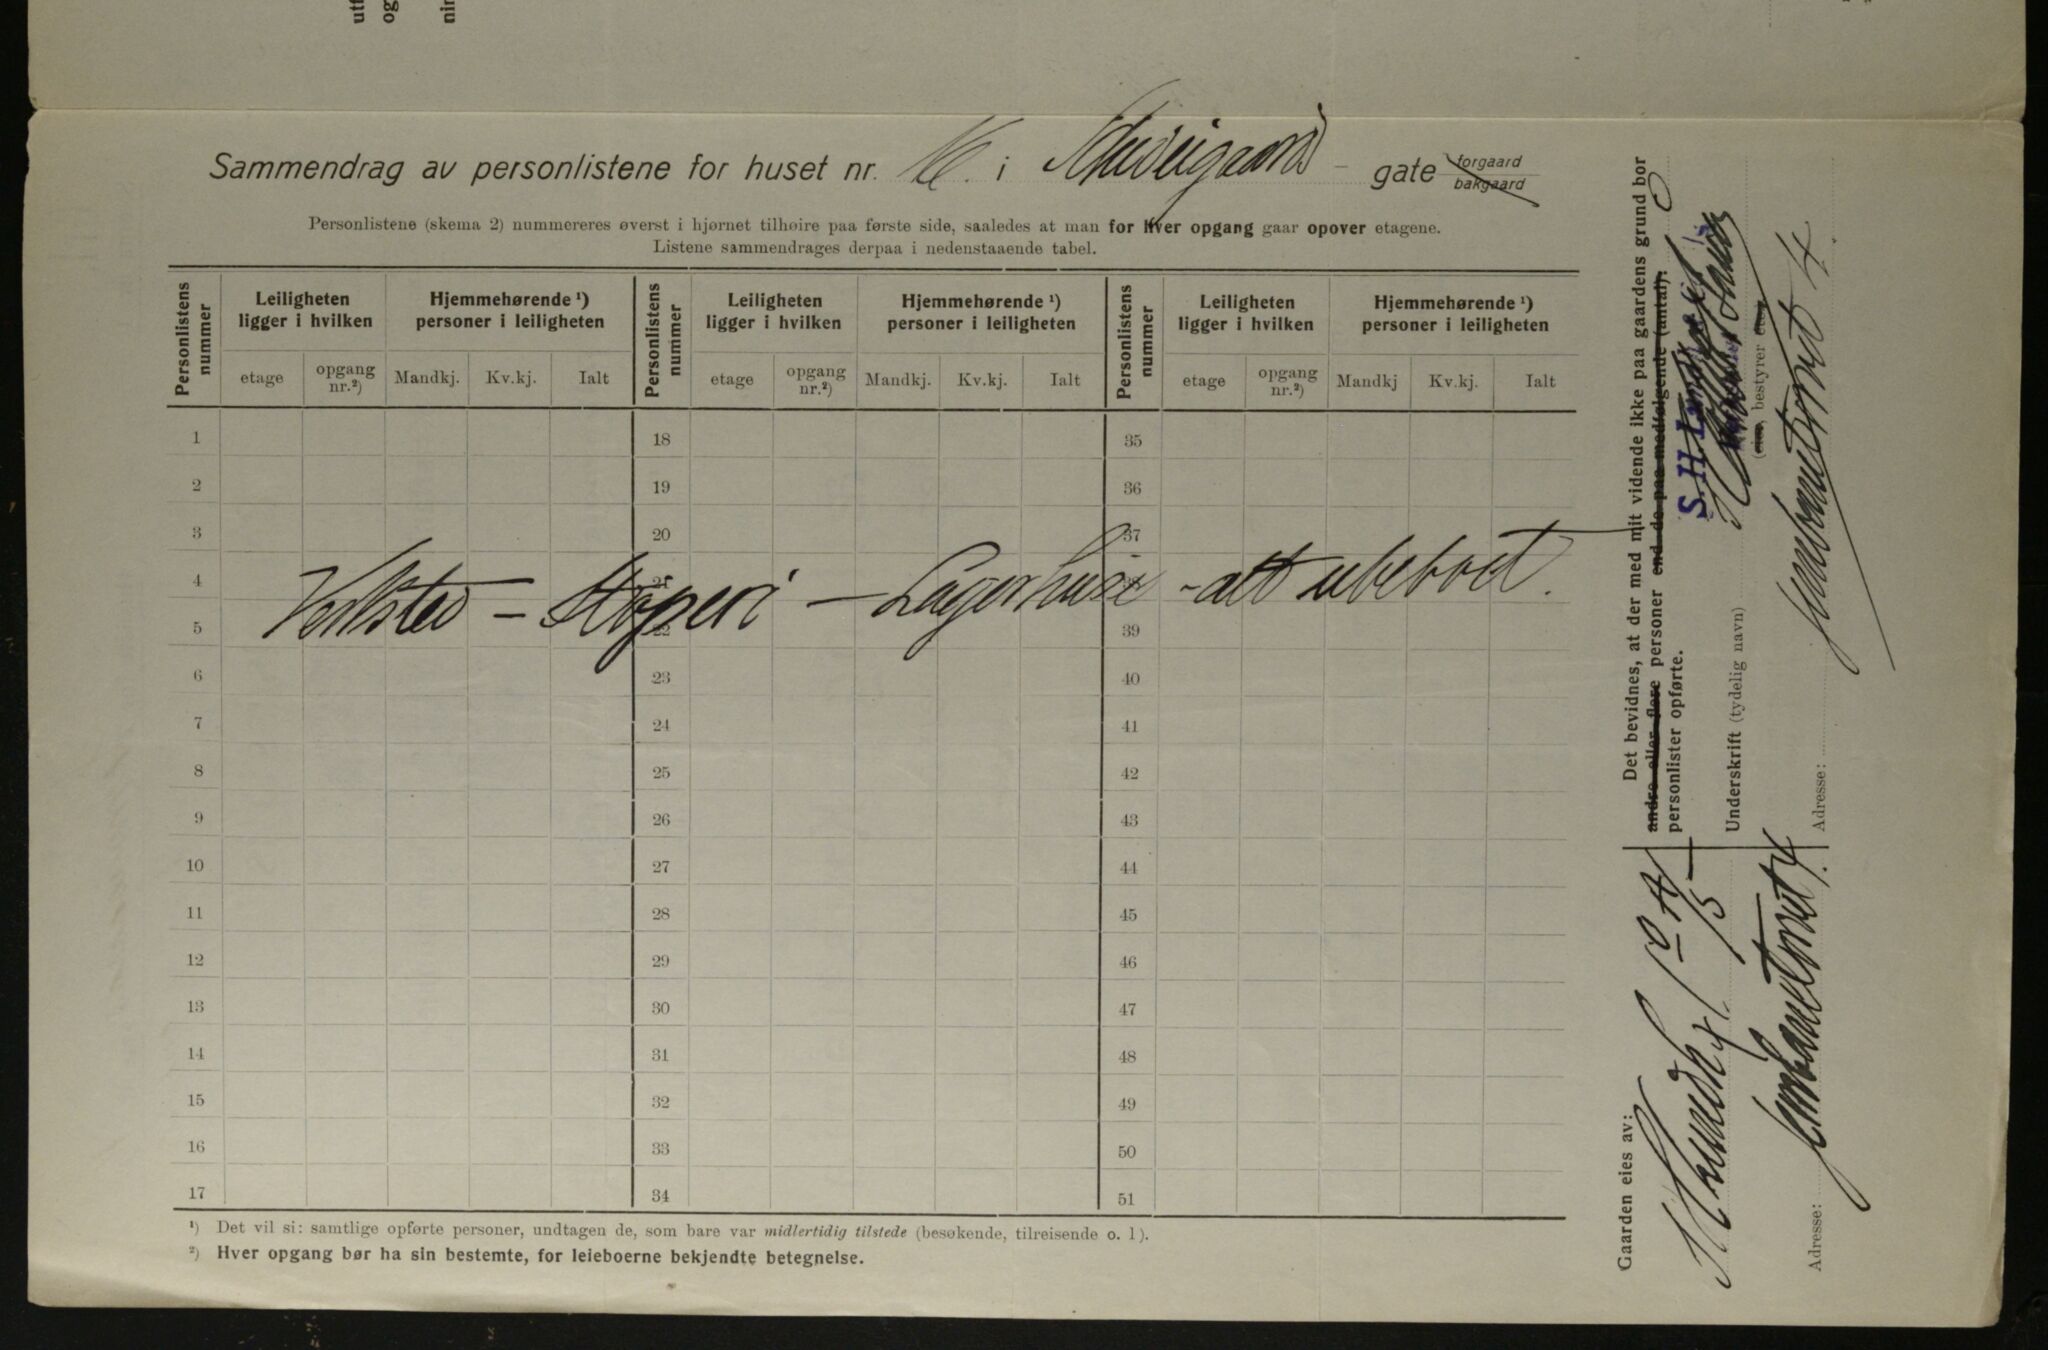 utf
og
nin
Sammendrag av personlistene for huset nr. 16. i Schweigaards gate forgaard bakgaard
Personlistene (skema 2) nummereres øverst i hjørnet tilhøire paa første side, saaledes at man for hver opgang gaar opover etagene.
Listene sammendrages derpaa i nedenstaaende tabel.
Personlistens nummer Leiligheten ligger i hvilken Hjemmehørende ¹) personer i leiligheten Personlistens nummer Leiligheten ligger i hvilken Hjemmehørende ¹) personer i leiligheten Personlistens nummer Leiligheten ligger i hvilken Hjemmehørende ¹) personer i leiligheten
etage opgang nr.²) Mandkj. Kv.kj. Ialt etage opgang nr.²) Mandkj. Kv.kj. Ialt etage opgang nr.²) Mandkj Kv.kj. Ialt
1 18 35
2 19 36
3 20 37
4 21
Verksted – Støperi – Lagerhuse - alt ubeboet.
5 22 39
6 23 40
7 24 41
8 25 42
9 26 43
10 27 44
11 28 45
12 29 46
13 30 47
14 31 48
15 32 49
16 33 50
17 34 51
¹) Det vil si: samtlige opførte personer, undtagen de, som bare var midlertidig tilstede (besøkende, tilreisende o. l).
²) Hver opgang bør ha sin bestemte, for leieboerne bekjendte betegnelse.
Det bevidnes, at der med mit vidende ikke paa gaardens grund bor
andre eller flere personer end de paa medfølgende (antal): 0
personlister opførte.
S. H. Lundh
Underskrift (tydelig navn)
(eier, bestyrer etc.)
Adresse: Jernbanetorvet 4
Gaarden eies av:
S H Lundh & Co A/S
Adresse: Jernbanetorvet 4.